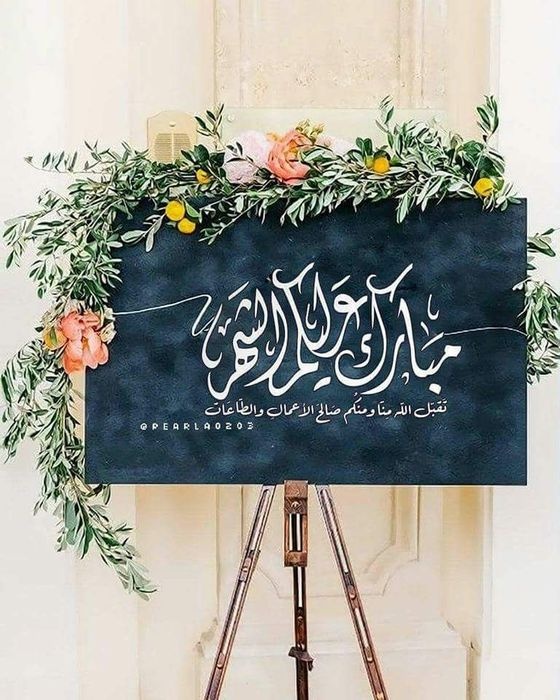 مبارك عليكم الشهر
تقبّل الله منّا ومنكُم صَالحَ الأعمالِ والطّاعَات
@PEARLA0203